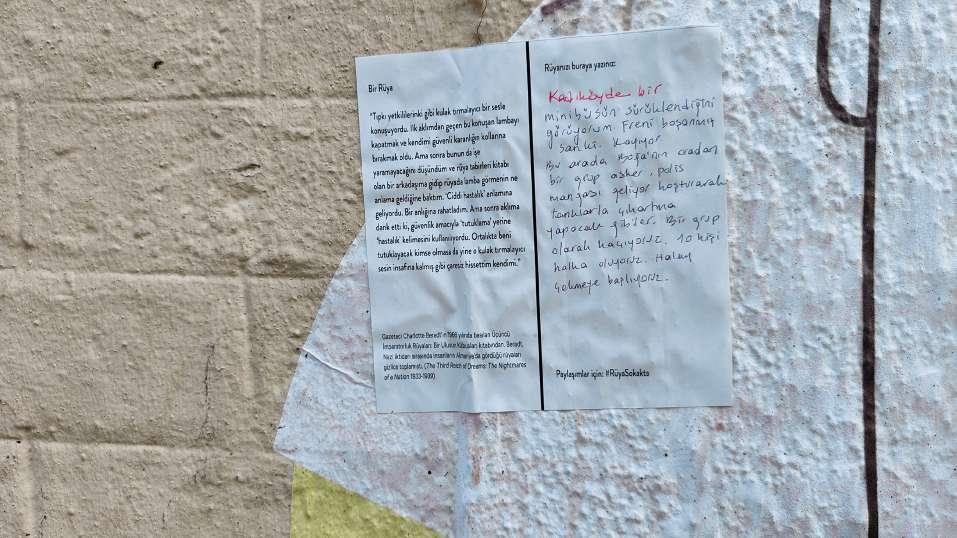 Bir Rüya
"Tıpkı yetkililerinki gibi kulak tırmalayıcı bir sesle
konuşuyordu. İlk aklımdan geçen bu konuşan lambayı
kapatmak ve kendimi güvenli karanlığın kollarına
bırakmak oldu. Ama sonra bunun da işe
yaramayacağını düşündüm ve rüya tabirleri kitabı
olan bir arkadaşıma gidip rüyada lamba görmenin ne
anlama geldiğine baktım. 'Ciddi hastalık' anlamına
geliyordu. Bir anlığına rahatladım. Ama sonra aklıma
dank etti ki, güvenlik amacıyla 'tutuklama' yerine
'hastalık' kelimesini kullanılıyordu. Ortalıkta beni
tutuklayacak kimse olmasa da yine o kulak tırmalayıcı
sesin insafına kalmış gibi çaresiz hissettim kendimi."
Gazeteci Charlotte Beradt'ın 1966 yılında basılan Üçüncü
İmparatorluk Rüyaları: Bir Ulusun Kabusları kitabından. Beradt,
Nazi iktidarı sırasında insanların Almanya'da gördüğü rüyaları
gizlice toplamıştı. (The Third Reich of Dreams: The Nightmares
of a Nation 1933-1939).
Rüyanızı buraya yazınız:
Kadıköyde bir
minibüsün sürüklendiğini
görüyorum. Freni boşanmış
sanki. Kayıyor
Bu arada Boğa'nın oradan
bir grup asker, polis
mangası geliyor koşturarak
tanklarla çıkartma
yapacak gibiler. Bir grup
olarak kaçıyoruz. 10 kişi
halka oluyoruz. Halay
çekmeye başlıyoruz.
Paylaşımlar için: #RüyaSokakta